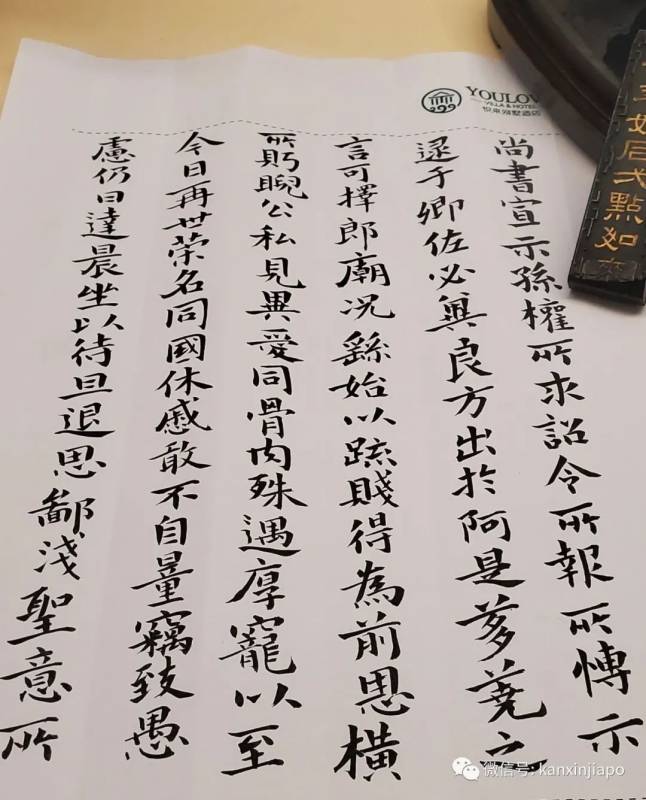 YOULOV
VILLA & HOTEL
悦来别墅酒店
尚書宣示孫權所求詔令所報所愽示
逮于卿佐必冀良方出於阿是芻蕘之
言可擇郎廟況繇始以疏賤得為前恩橫
所眄睨公私見異愛同骨肉殊遇厚寵以至
今日再世荣名同國休慼敢不自量竊致愚
慮仍日達晨坐以待旦退思鄙淺聖意所
點如
微信号: kanxinjiapo